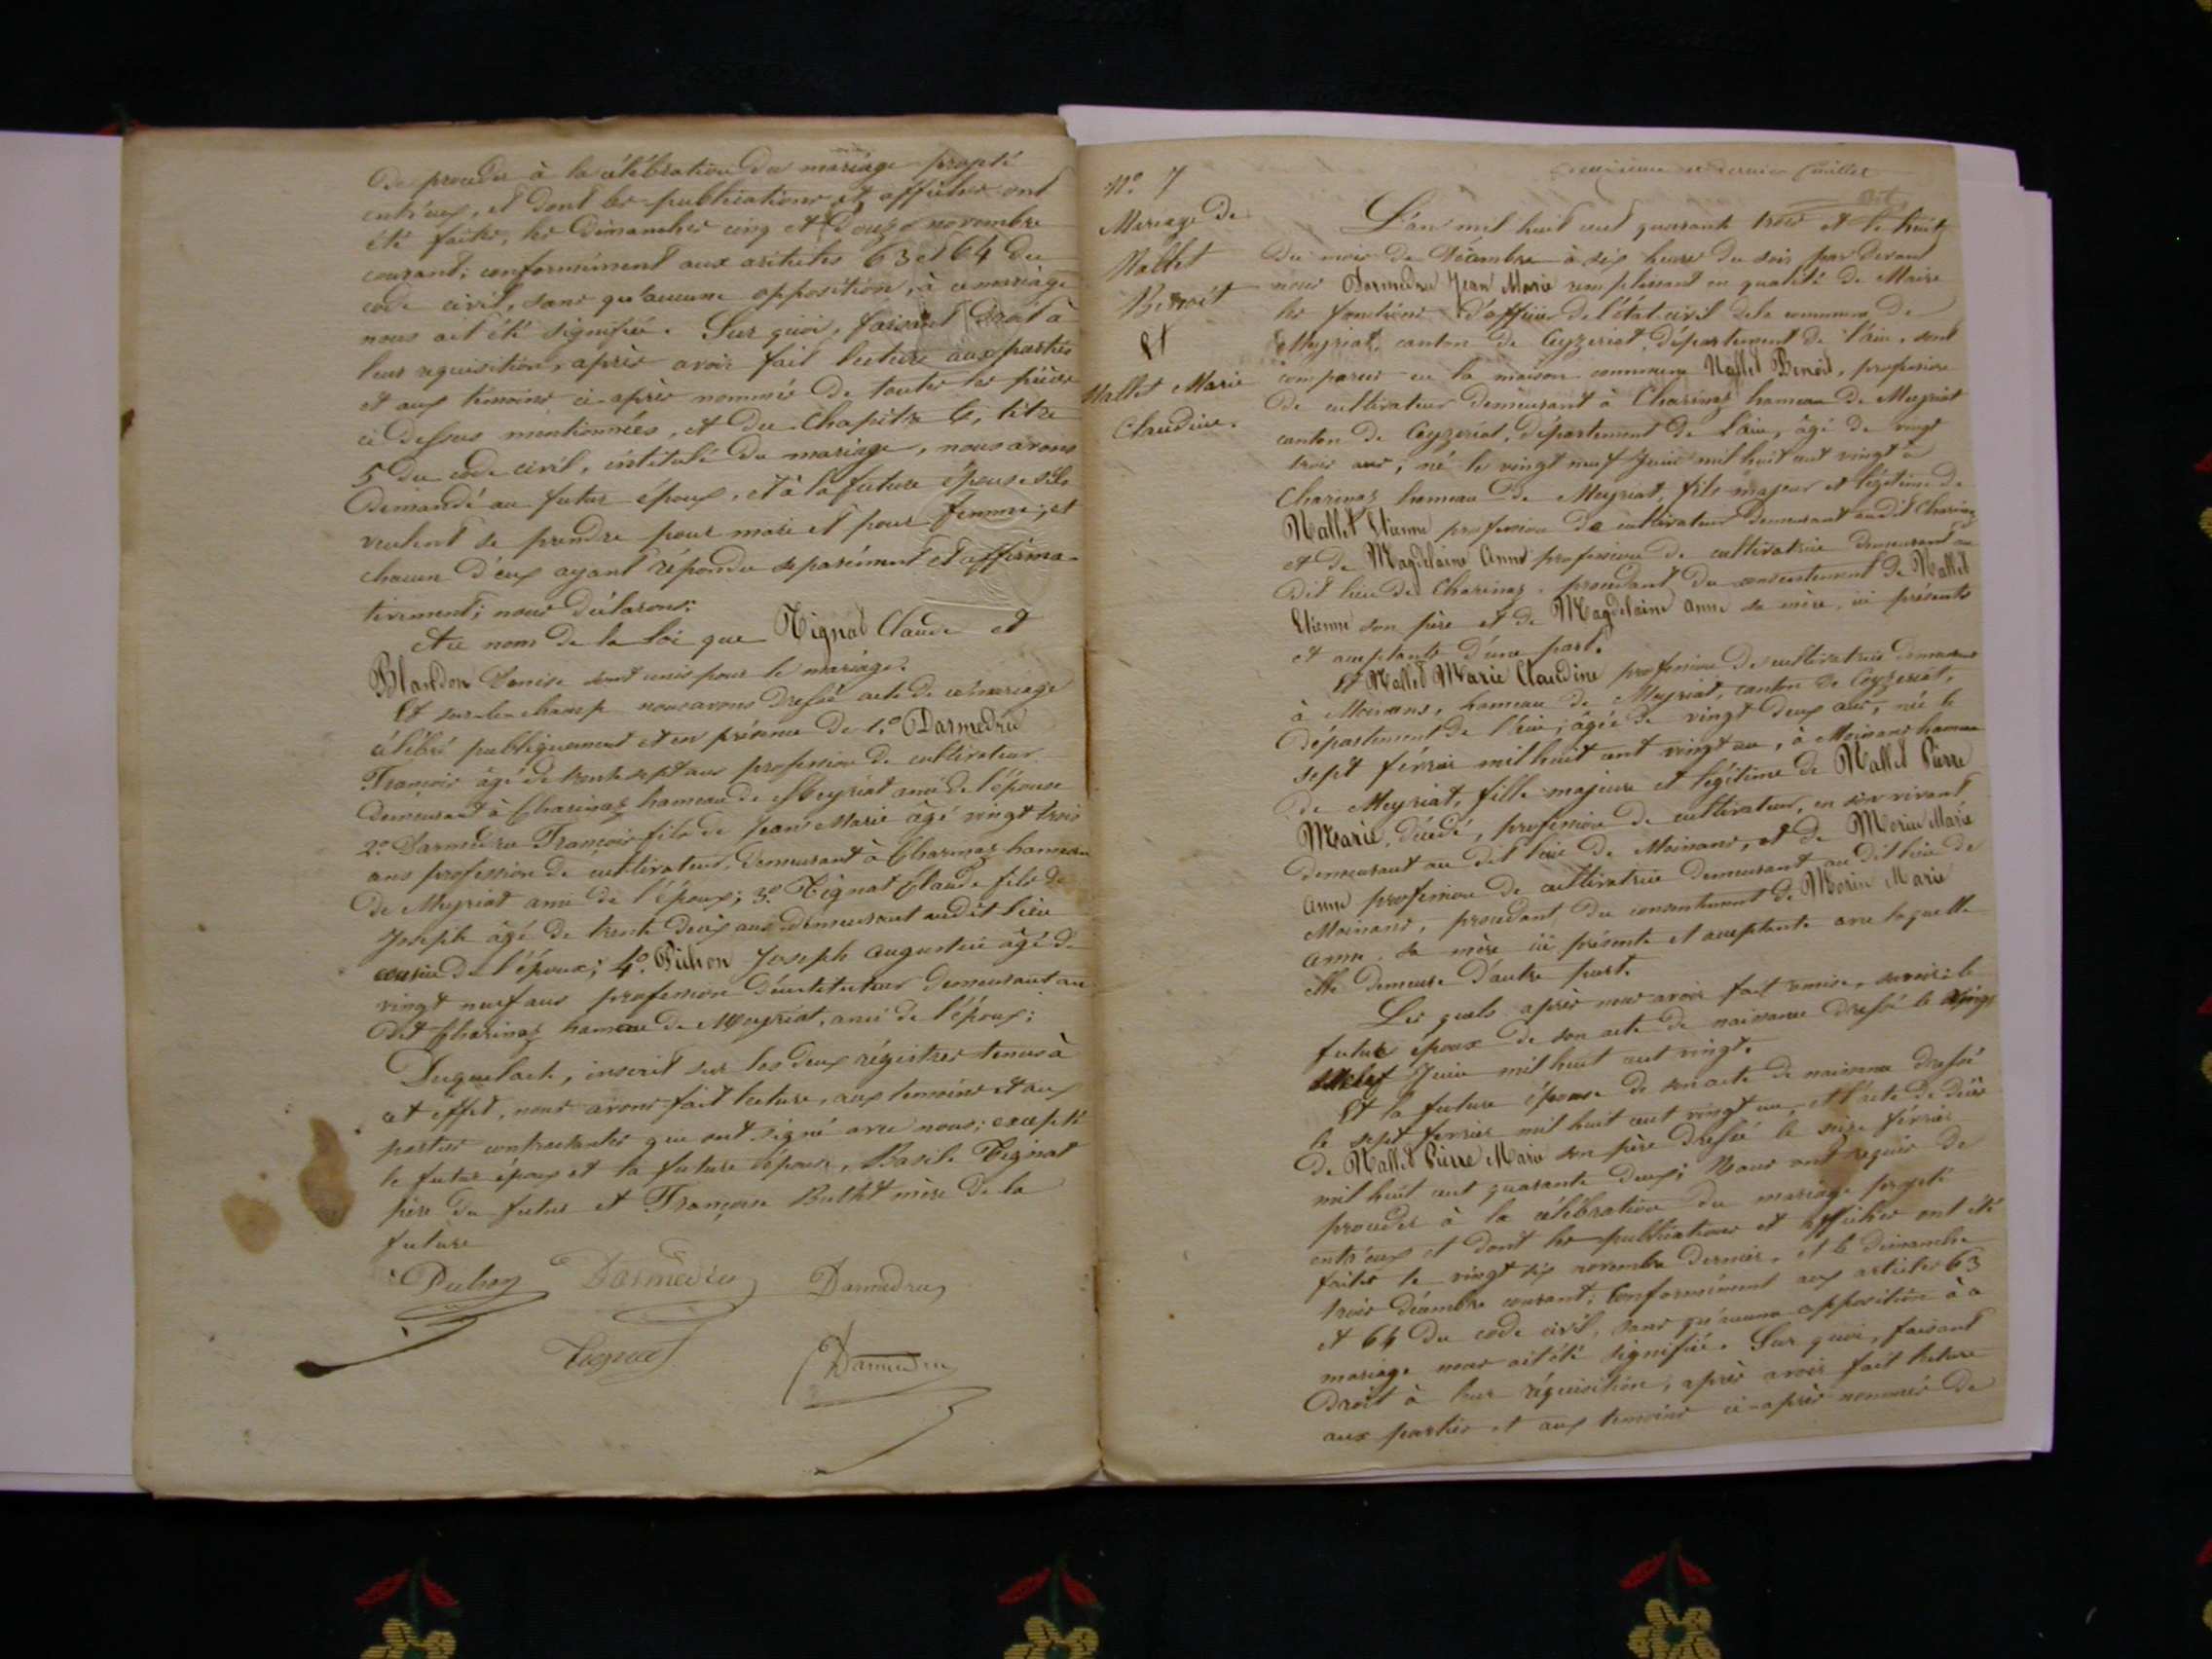 de procéder à la célébration du mariage projeté
entr'eux, et dont les publications et affiches ont
été faites, les dimanches cinq et Douze novembre
courant; conformément aux articles 63 et 64 du
code civil, sans qu'aucune opposition, à ce mariage
nous ait été signifiée. Sur quoi, faisant droit à
leur requisition, après avoir fait lecture aux parties
et aux témoins ci-après nommés de toutes les pièces
ci dessus mentionnées, et du Chapitre 6, titre
5 du code civil, intitulé du mariage, nous avons
Demandé au futur époux, et à la future épouse s'ils
veulent se prendre pour mari et pour femme, et
chacun d'eux ayant répondu séparément et affirma-
tivement; nous déclarons;
Au nom de la loi que Tignat Claude et
Blandon Denise sont unis pour le mariage.
Et sur-le-champ nous avons dressé acte de ce mariage
célébré publiquement et en présence de 1.o Darmedru
François âgé de trente sept ans profession de cultivateur
demeurant à Charinaz hameau de Meyriat ami de l'épouse
2.o Darmedru François fils de Jean Marie âgé vingt trois
ans profession de cultivateur, demeurant à Charinaz hameau
de Meyriat ami de l'époux; 3.o Tignat Claude fils de
Joseph âgé de trente deux ans demeurant audit lieu
cousin de l'époux; 4.o Pichon Joseph Augustin âgé de
vingt neuf ans profession d'instituteur demeurant au
dit Charinaz hameau de Meyriat, ami de l'époux;
Duquel acte, inscrit sur les deux régistres tenus à
cet effet, nous avons fait lecture, aux temoins et aux
parties contractantes qui ont signé avec nous; excepté
le futur époux et la future épouse, Basile Tignat
père du futur et Françoise Buthet mère de la
future
Pichon Darmedru Darmedru
Tignat Darmedru
N.o 7
Mariage de
Nallet
Benoit
Et
Nallet Marie
Claudine.
et dernier feuillet
L'an mil huit cent quarante trois et le huit
du mois de Décembre à six heures du soir par devant
nous Darmedru Jean Marie remplissant en qualité de Maire
les fonctions d'officier de l'état civil de la commune de
Meyriat, canton de Ceyzeriat, département de l'ain, sont
comparus en la maison commune Nallet Benoit, profession
de cultivateur demeurant à Charinaz hameau de Meyriat
canton de Ceyzeriat, département de l'ain, âgé de vingt
trois ans, né le vingt neuf Juin mil huit cent vingt à
Charinaz hameau de Meyriat, fils majeur et légitime de
Nallet Etienne profession de cultivateur demeurant audit Charinaz
et de Magdelaine Anne profession de cultivatrice demeurant au
dit lieu de Charinaz, procédant du consentement de Nallet
Etienne son père et de Magdelaine Anne sa mère, ici présents
et acceptants d'une part.
Et Nallet Marie Claudine profession de cultivatrice demeurant
à Moinans, hameau de Meyriat, canton de Ceyzeriat,
département de l'ain, âgée de vingt deux ans, née le
sept février mil huit cent vingt un, à Moinans hameau
de Meyriat, fille majeure et légitime de Nallet Pierre
Marie, décédé, profession de cultivateur, en son vivant
demeurant au dit lieu de Moinans, et de Morin Marie
Anne profession de cultivatrice demeurant au dit lieu de
Moinans, procédant du consentement de Morin Marie
Anne, sa mère ici présente et acceptante avec laquelle
elle demeure d'autre part.
Les quels après nous avoir fait remise, savoir: le
futur époux de son acte de naissance dressé le vingt
neuf Juin mil huit cent vingt.
Et la future épouse de son acte de naissance dressé
le sept février mil huit cent vingt un, et l'acte de décès
de Nallet Pierre Marie son père dressé le seize février
mil huit cent quarante deux; Nous ont requis de
procéder à la célébration du mariage projeté
entr'eux et dont les publications et affiches ont été
faites le vingt six novembre dernier, et le dimanche
trois décembre courant; Conformément aux articles 63
et 64 du code civil, sans qu'aucune opposition à ce
mariage nous ait été signifiée. Sur quoi, faisant
Droit à leur réquisition, après avoir fait lecture
aux parties et aux temoins ci-après nommés de